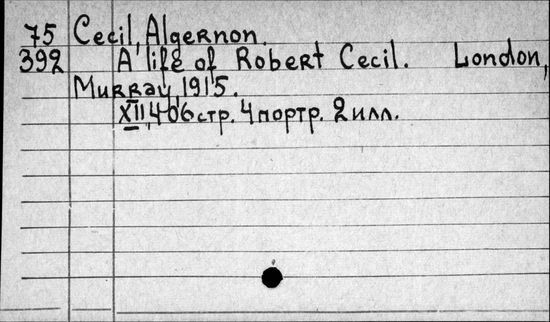 75 Cecil, Algernon.
392 A life of Robert Cecil. London,
Murray, 1915.
XII, 406 стр. 4 портр. 2 илл.